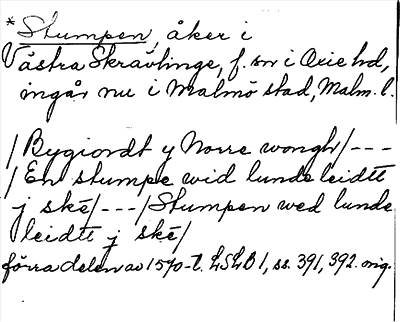 *Stumpen, åker i
Västra Skrävlinge, f. sn i Oxie hd,
ingår nu i Malmö stad, Malm. l.
/Bygiordt y Norre wongh/---
/En stumpe wid lunde leidtt
j skē/---/Stumpen wed lunde
leidtt j skē/
förra delen av 1570-t. LSLB 1, ss. 391, 392. orig.